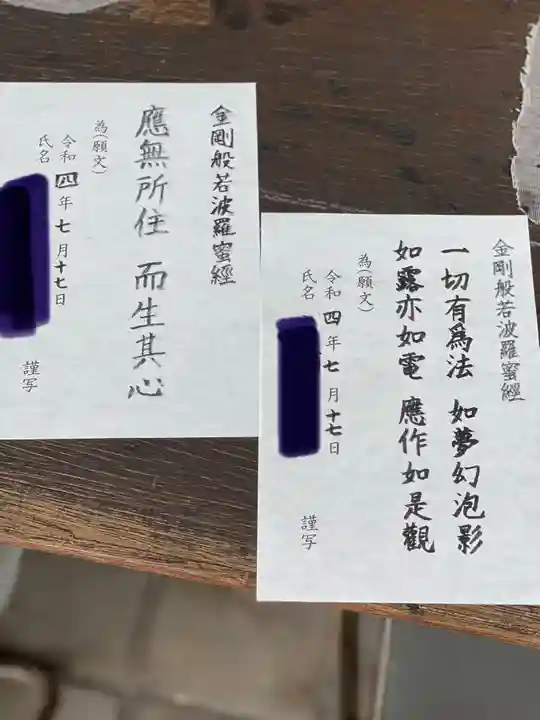 金剛般若波羅蜜經
應無所住 而生其心
為(願文)
令和四年七月十七日
氏名
謹写
金剛般若波羅蜜經
一切有爲法 如夢幻泡影
如露亦如電 應作如是觀
為(願文)
令和四年七月十七日
氏名
謹写